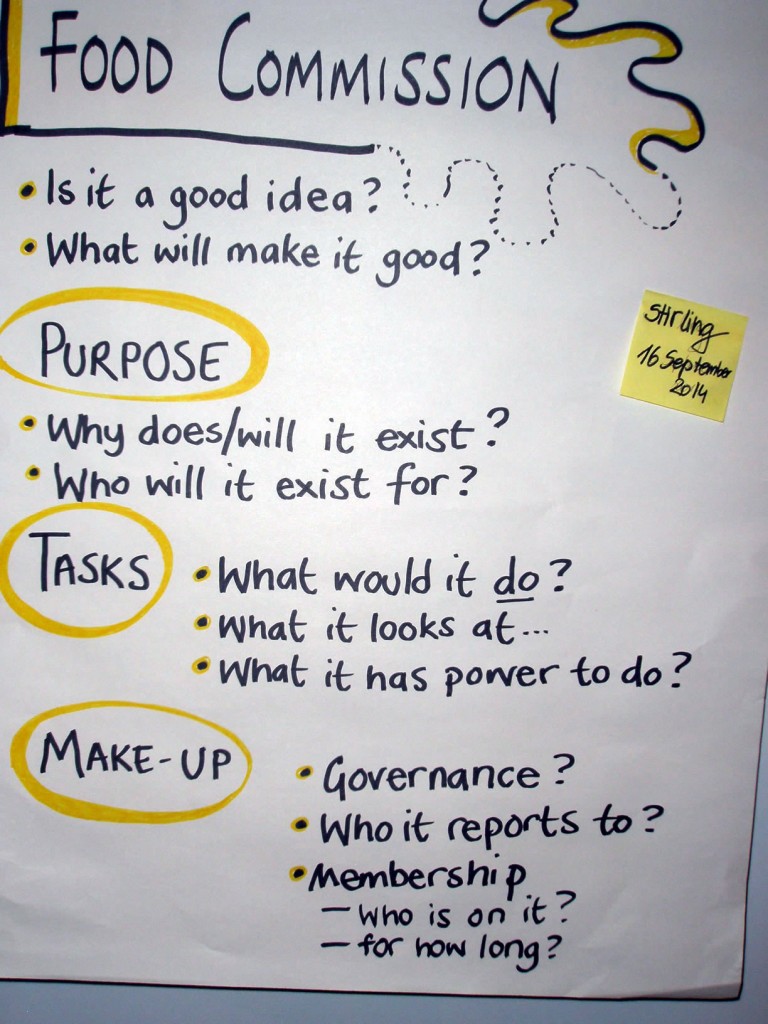 FOOD COMMISSION
• Is it a good idea?
• What will make it good?
Stirling
16 September
2014
PURPOSE
• Why does/will it exist?
• Who will it exist for?
TASKS
• What would it do?
• What it looks at...
• What it has power to do?
MAKE-UP
• Governance?
• Who it reports to?
• Membership
– Who is on it?
– for how long?